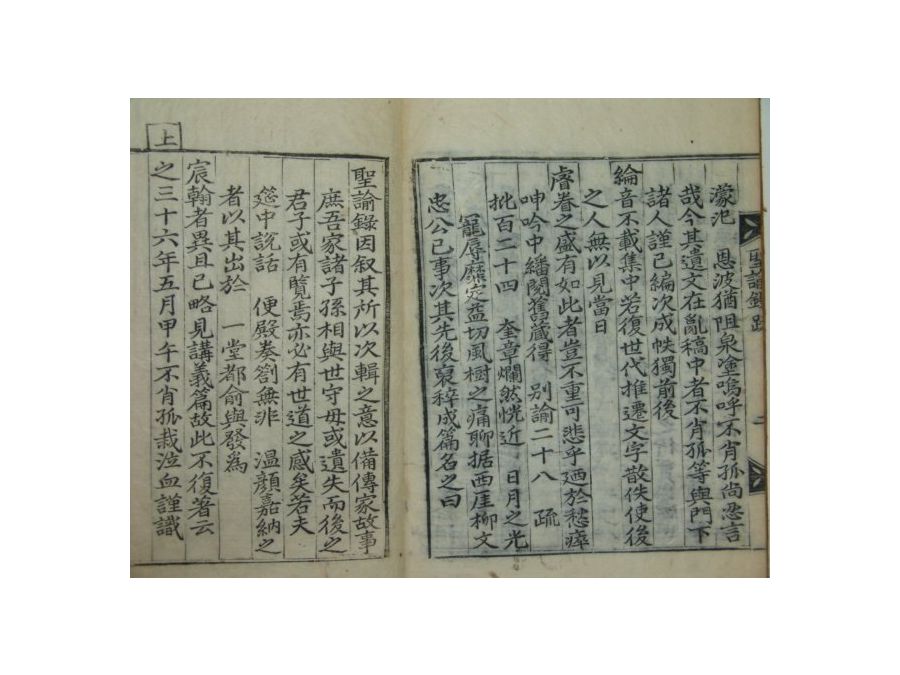 聖諭錄跋 二
濛汜 恩波猶阻泉塗嗚呼不肖孤尚忍言
哉今其遺文在亂稿中者不肖孤等與門下
諸人謹已編次成帙獨前後
綸音不載集中若復世代推遷文字散佚使後
之人無以見當日
睿眷之盛有如此者豈不重可悲乎廼於愁瘁
呻吟中繙閱舊藏得 別諭二十八 疏
批百二十四 奎章爛然恍近 日月之光
寵辱靡定益切風樹之痛聊据西厓柳文
忠公已事次其先後裒稡成篇名之曰
聖諭錄因叙其所以次輯之意以備傳家故事
庶吾家諸子孫相與世守毋或遺失而後之
君子或有覽焉亦必有世道之感矣若夫
筵中說話 便殿奏劄無非 溫顏嘉納之
者以其出於 一堂都俞與發為
宸翰者異且已略見講義篇故此不復著云
上
之三十六年五月甲午不肖孤栽泣血謹識